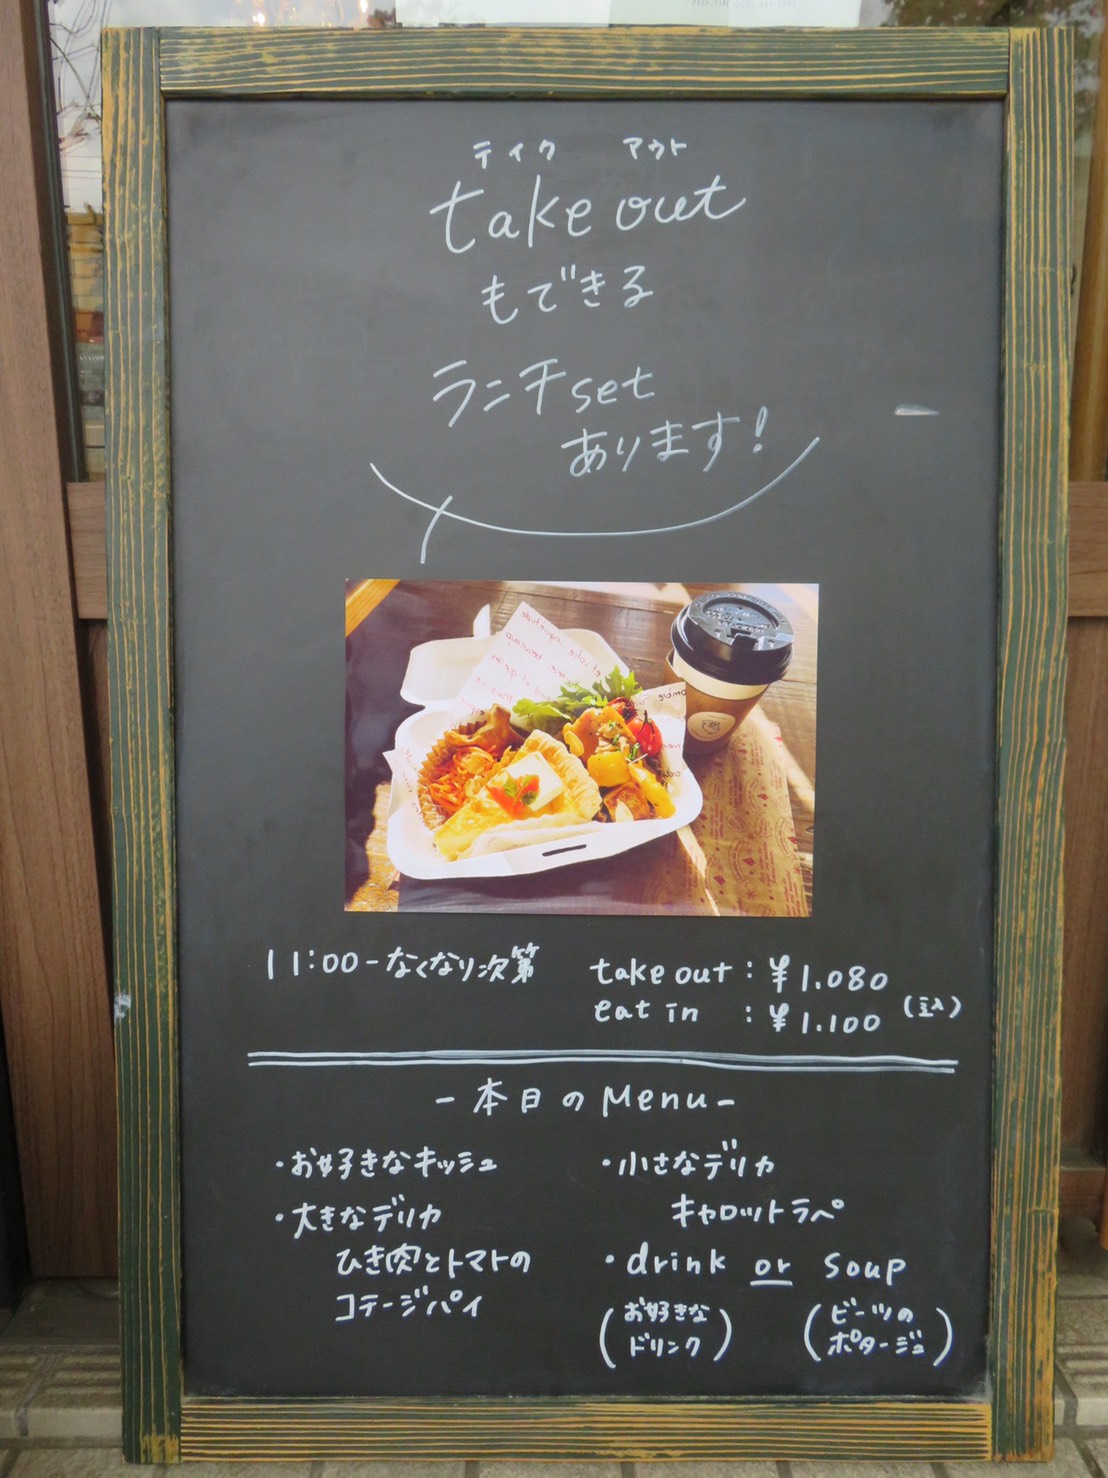 テイク アウト
take out
もできる
ランチset
あります!
11:00-なくなり次第
take out : ¥1.080
eat in : ¥1.100 (税込)
-本日のMenu-
・お好きなキッシュ
・大きなデリカ
ひき肉とトマトの
コテージパイ
・小さなデリカ
キャロットラペ
・drink or soup
(お好きな
ドリンク)
(ビーツの
ポタージュ)